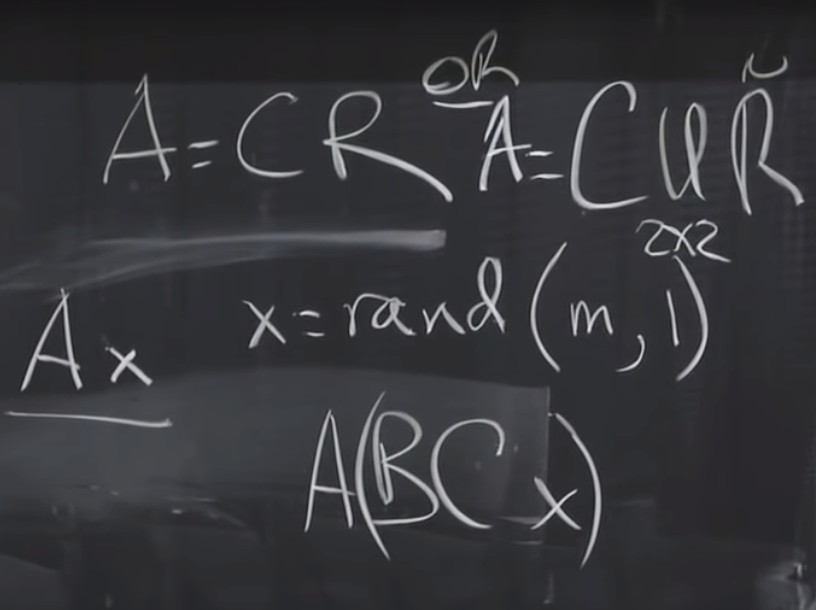 A = CR OR A = CUR̃
2x2
Ax x = rand(m,1)
A(BCx)